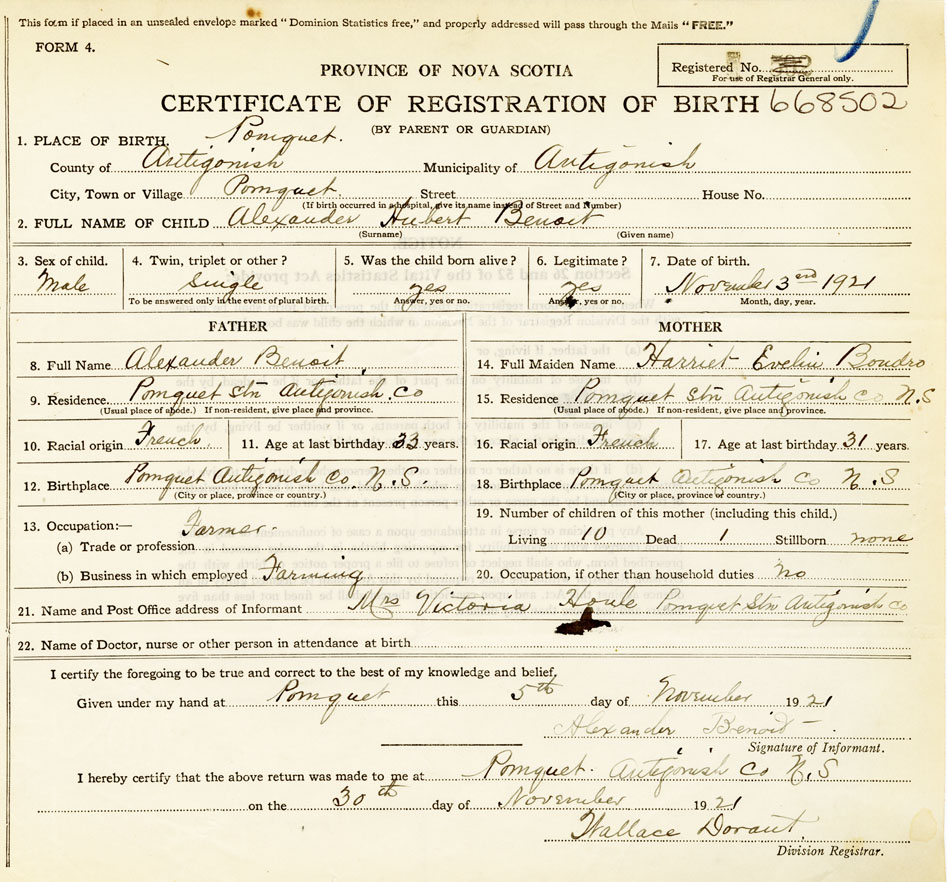 This form if placed in an unsealed envelope marked "Dominion Statistics free," and properly addressed will pass through the Mails "FREE."
FORM 4.
Registered No.
For use of Registrar General only.
PROVINCE OF NOVA SCOTIA
CERTIFICATE OF REGISTRATION OF BIRTH 668502
(BY PARENT OR GUARDIAN)
1. PLACE OF BIRTH. Pomquet.
County of Antigonish Municipality of Antigonish
City, Town or Village Pomquet Street House No.
(If birth occurred in a hospital, give its name instead of Street and Number)
2. FULL NAME OF CHILD Alexander Hubert Benoit
(Surname) (Given name)
3. Sex of child. 4. Twin, triplet or other? 5. Was the child born alive? 6. Legitimate? 7. Date of birth.
Male Single yes yes November 3rd 1921
To be answered only in the event of plural birth. Answer, yes or no. Answer, yes or no. Month, day, year.
FATHER MOTHER
8. Full Name Alexander Benoit 14. Full Maiden Name Harriet Evelin Boudro
9. Residence. Pomquet Stn Antigonish. Co 15. Residence Pomquet Stn Antigonish Co N.S
(Usual place of abode.) If non-resident, give place and province. (Usual place of abode.) If non-resident, give place and province.
10. Racial origin French. 11. Age at last birthday 33 years. 16. Racial origin French 17. Age at last birthday 31 years.
12. Birthplace Pomquet Antigonish Co. N.S. 18. Birthplace Pomquet Antigonish Co N.S
(City or place, province or country.) (City or place, province or country.)
13. Occupation:— Farmer. 19. Number of children of this mother (including this child.)
(a) Trade or profession Living 10 Dead 1 Stillborn none
(b) Business in which employed Farming 20. Occupation, if other than household duties No
21. Name and Post Office address of Informant Mrs Victoria Pomquet Stn Antigonish Co
22. Name of Doctor, nurse or other person in attendance at birth
I certify the foregoing to be true and correct to the best of my knowledge and belief.
Given under my hand at Pomquet this 5th day of November 1921
Alexander Benoit
Signature of Informant.
I hereby certify that the above return was made to me at Pomquet. Antigonish Co N.S
on the 30th day of November 1921
Wallace Dorant.
Division Registrar.